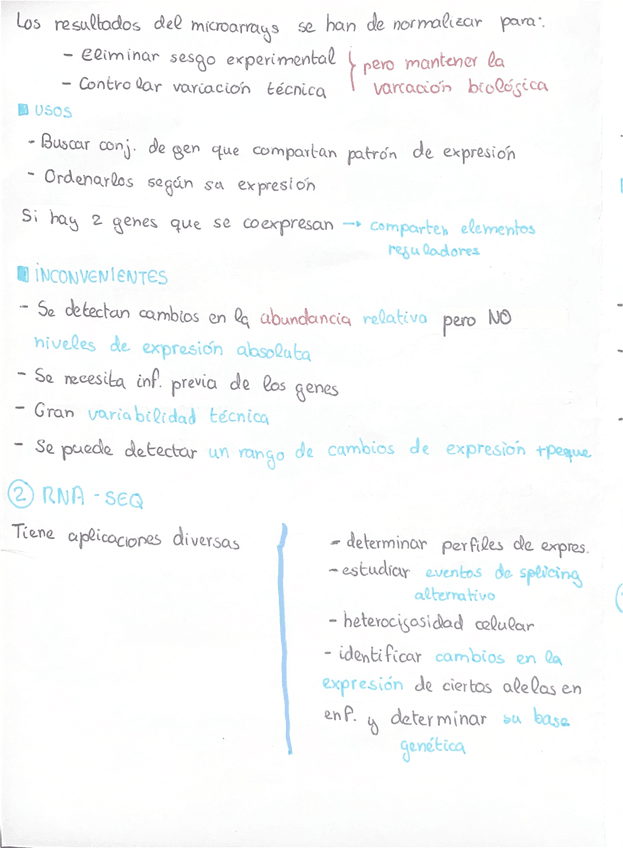 Los resultados del microarrays se han de normalizar para:
- Eliminar sesgo experimental
- Controlar variación técnica
pero mantener la
variación biológica
USOS
- Buscar conj. de gen que compartan patrón de expresión
- Ordenarlos según su expresión
Si hay 2 genes que se coexpresan → comparten elementos
reguladores
INCONVENIENTES
- Se detectan cambios en la abundancia relativa pero NO
niveles de expresión absoluta
- Se necesita inf. previa de los genes
- Gran variabilidad técnica
- Se puede detectar un rango de cambios de expresión +peque
② RNA-SEQ
Tiene aplicaciones diversas
- determinar perfiles de expres.
- estudiar eventos de splicing
alternativo
- heterocigosidad celular
- identificar cambios en la
expresión de ciertos alelas en
enf. y determinar su base
genética